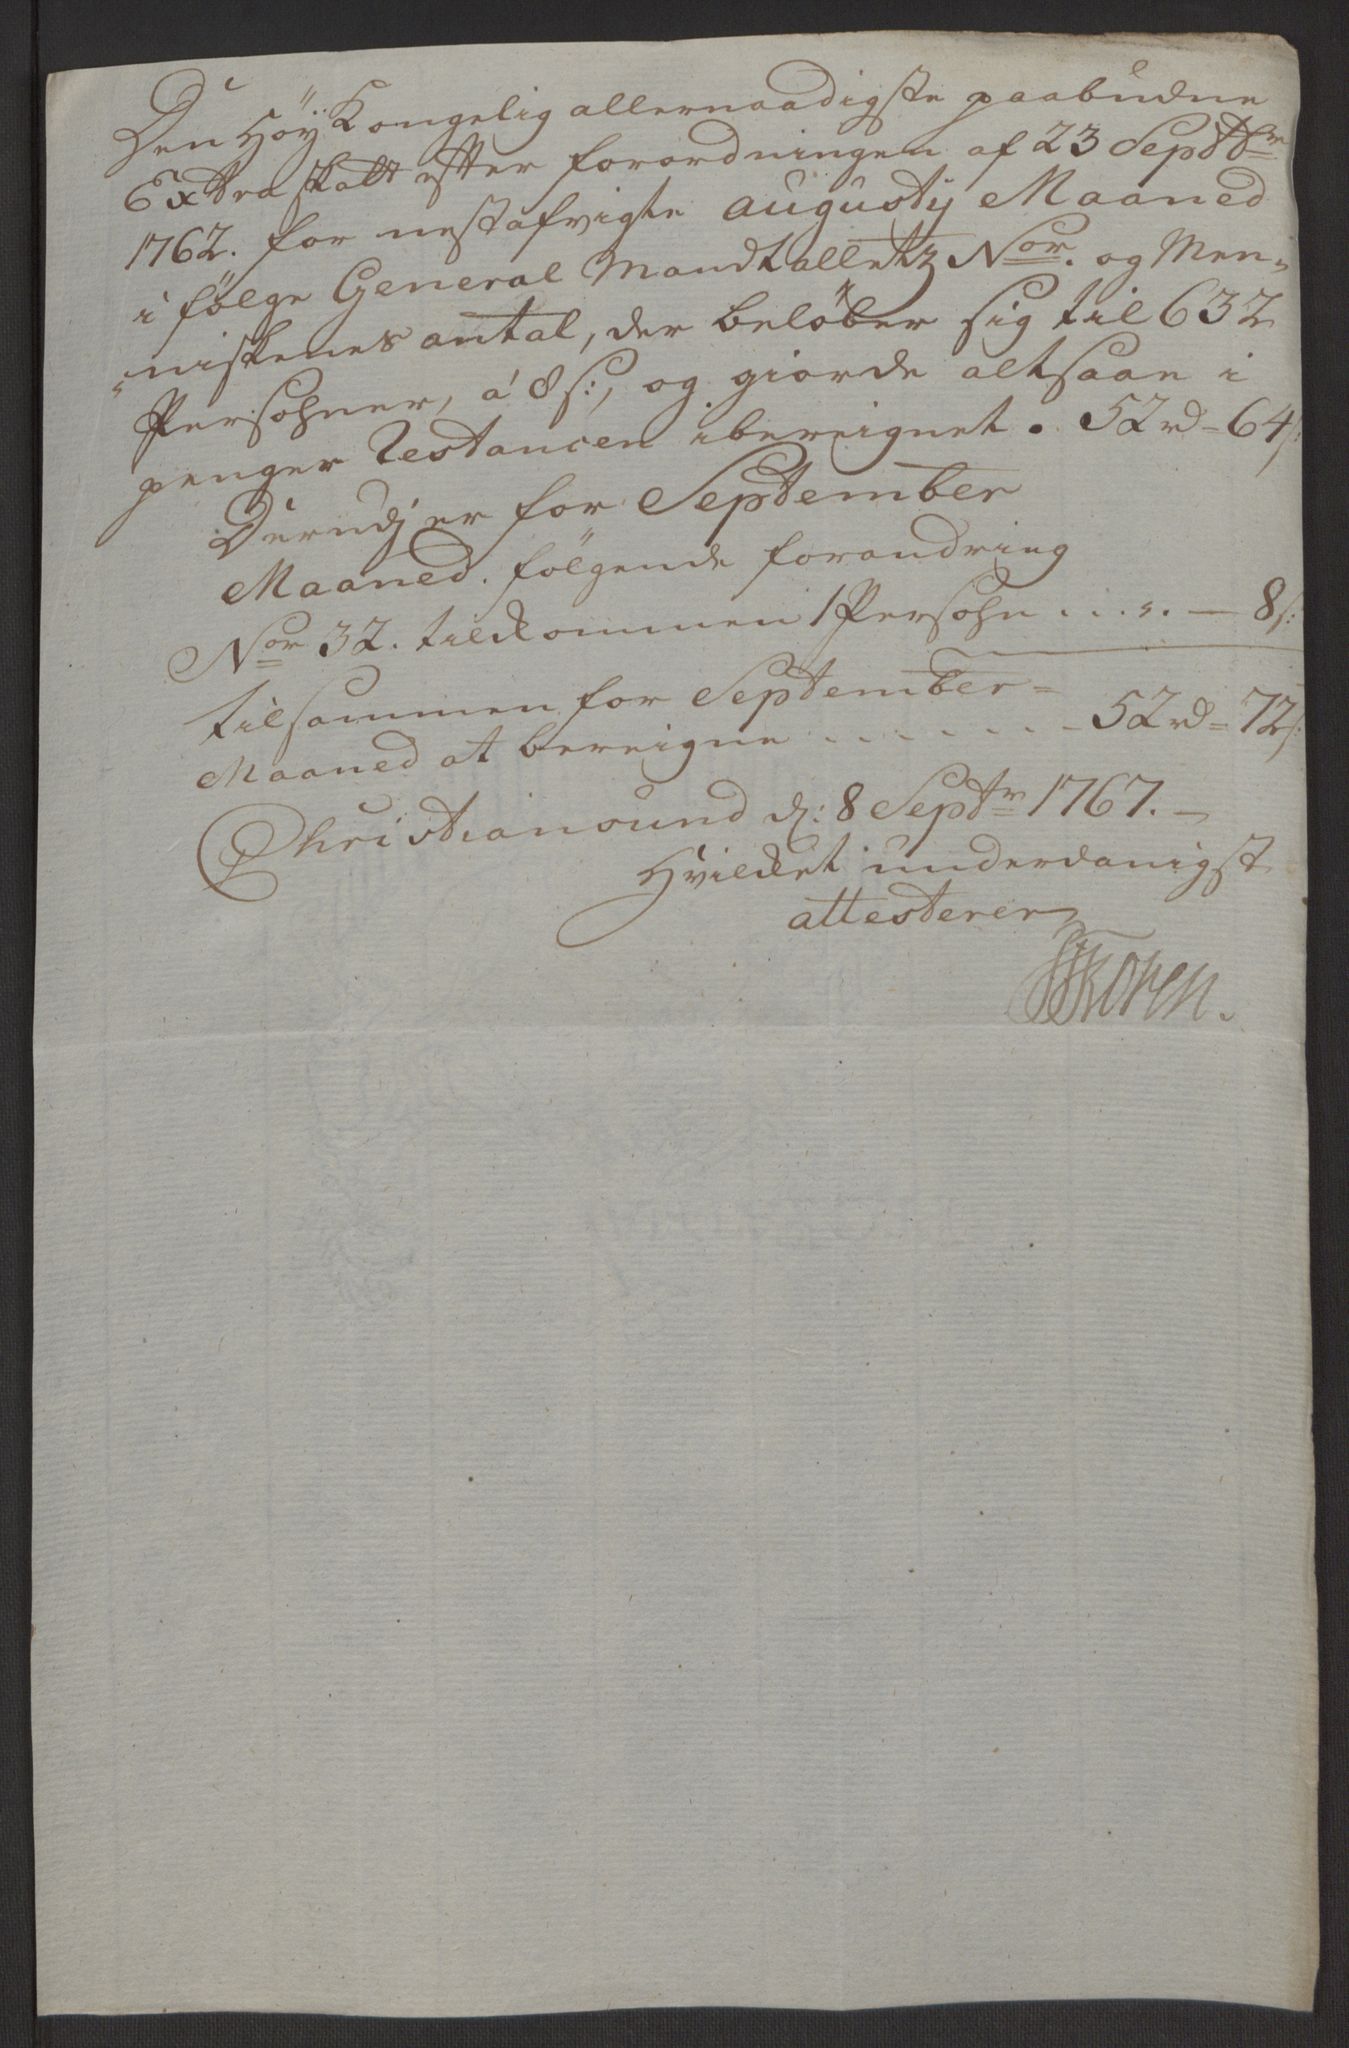 Den Höÿ Kongelig allernaadigste paabudne
Extra skatt efter forordningen af 23 Septbr
1762. for nestafvigte Augusty Maaned
i følge General Mandtalletz Nor. og Men,,
,,niskenes antal, der beløber sig til 632
Persohner, á 8 s:, og giorde altsaae i
penger Restancen ibereignet. 52 rd = 64 s:
Derudj er for September
Maaned. følgende forandring
Nor 32. tilkommen 1 Persohn . . . . . — 8 s:
tilsammen for September =
Maaned at bereigne . . . . . . . - 52 rd = 72 s:
Christiansund d: 8 Septr 1767. —
Hvilket underdanigst
attesterer
Koren.